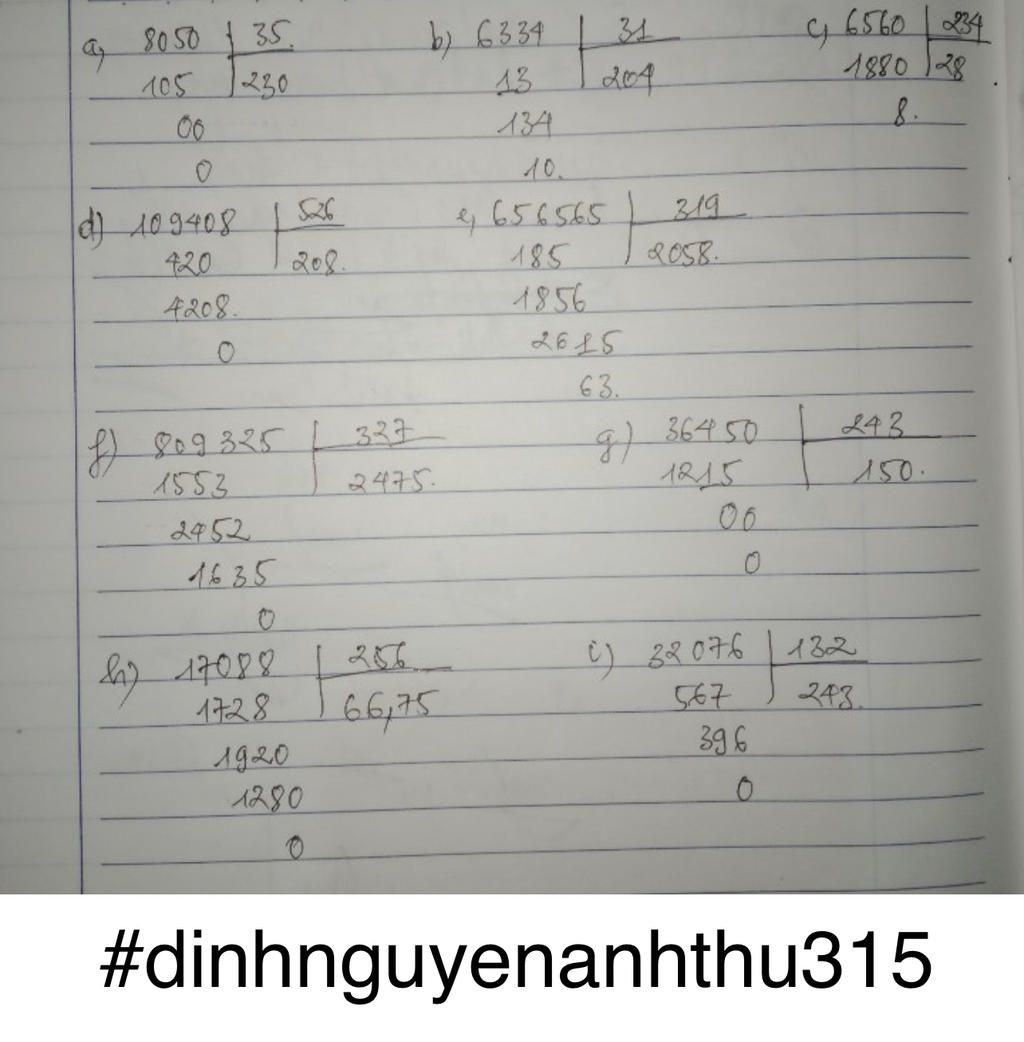 a, 8050 35. b) 6334 31 c, 6560 234
105 230 13 204 1880 28
00 134 8.
0 10.
d) 109408 526 e, 656565 319
420 208. 185 2058.
4208. 1856
0 2615
63.
f) 809325 327 g) 36450 243
1553 2475. 1215 150.
2452 00
1635 0
0
h) 17088 256 i) 32076 132
1728 66,75 567 243.
1920 396
1280 0
0
#dinhnguyenanhthu315